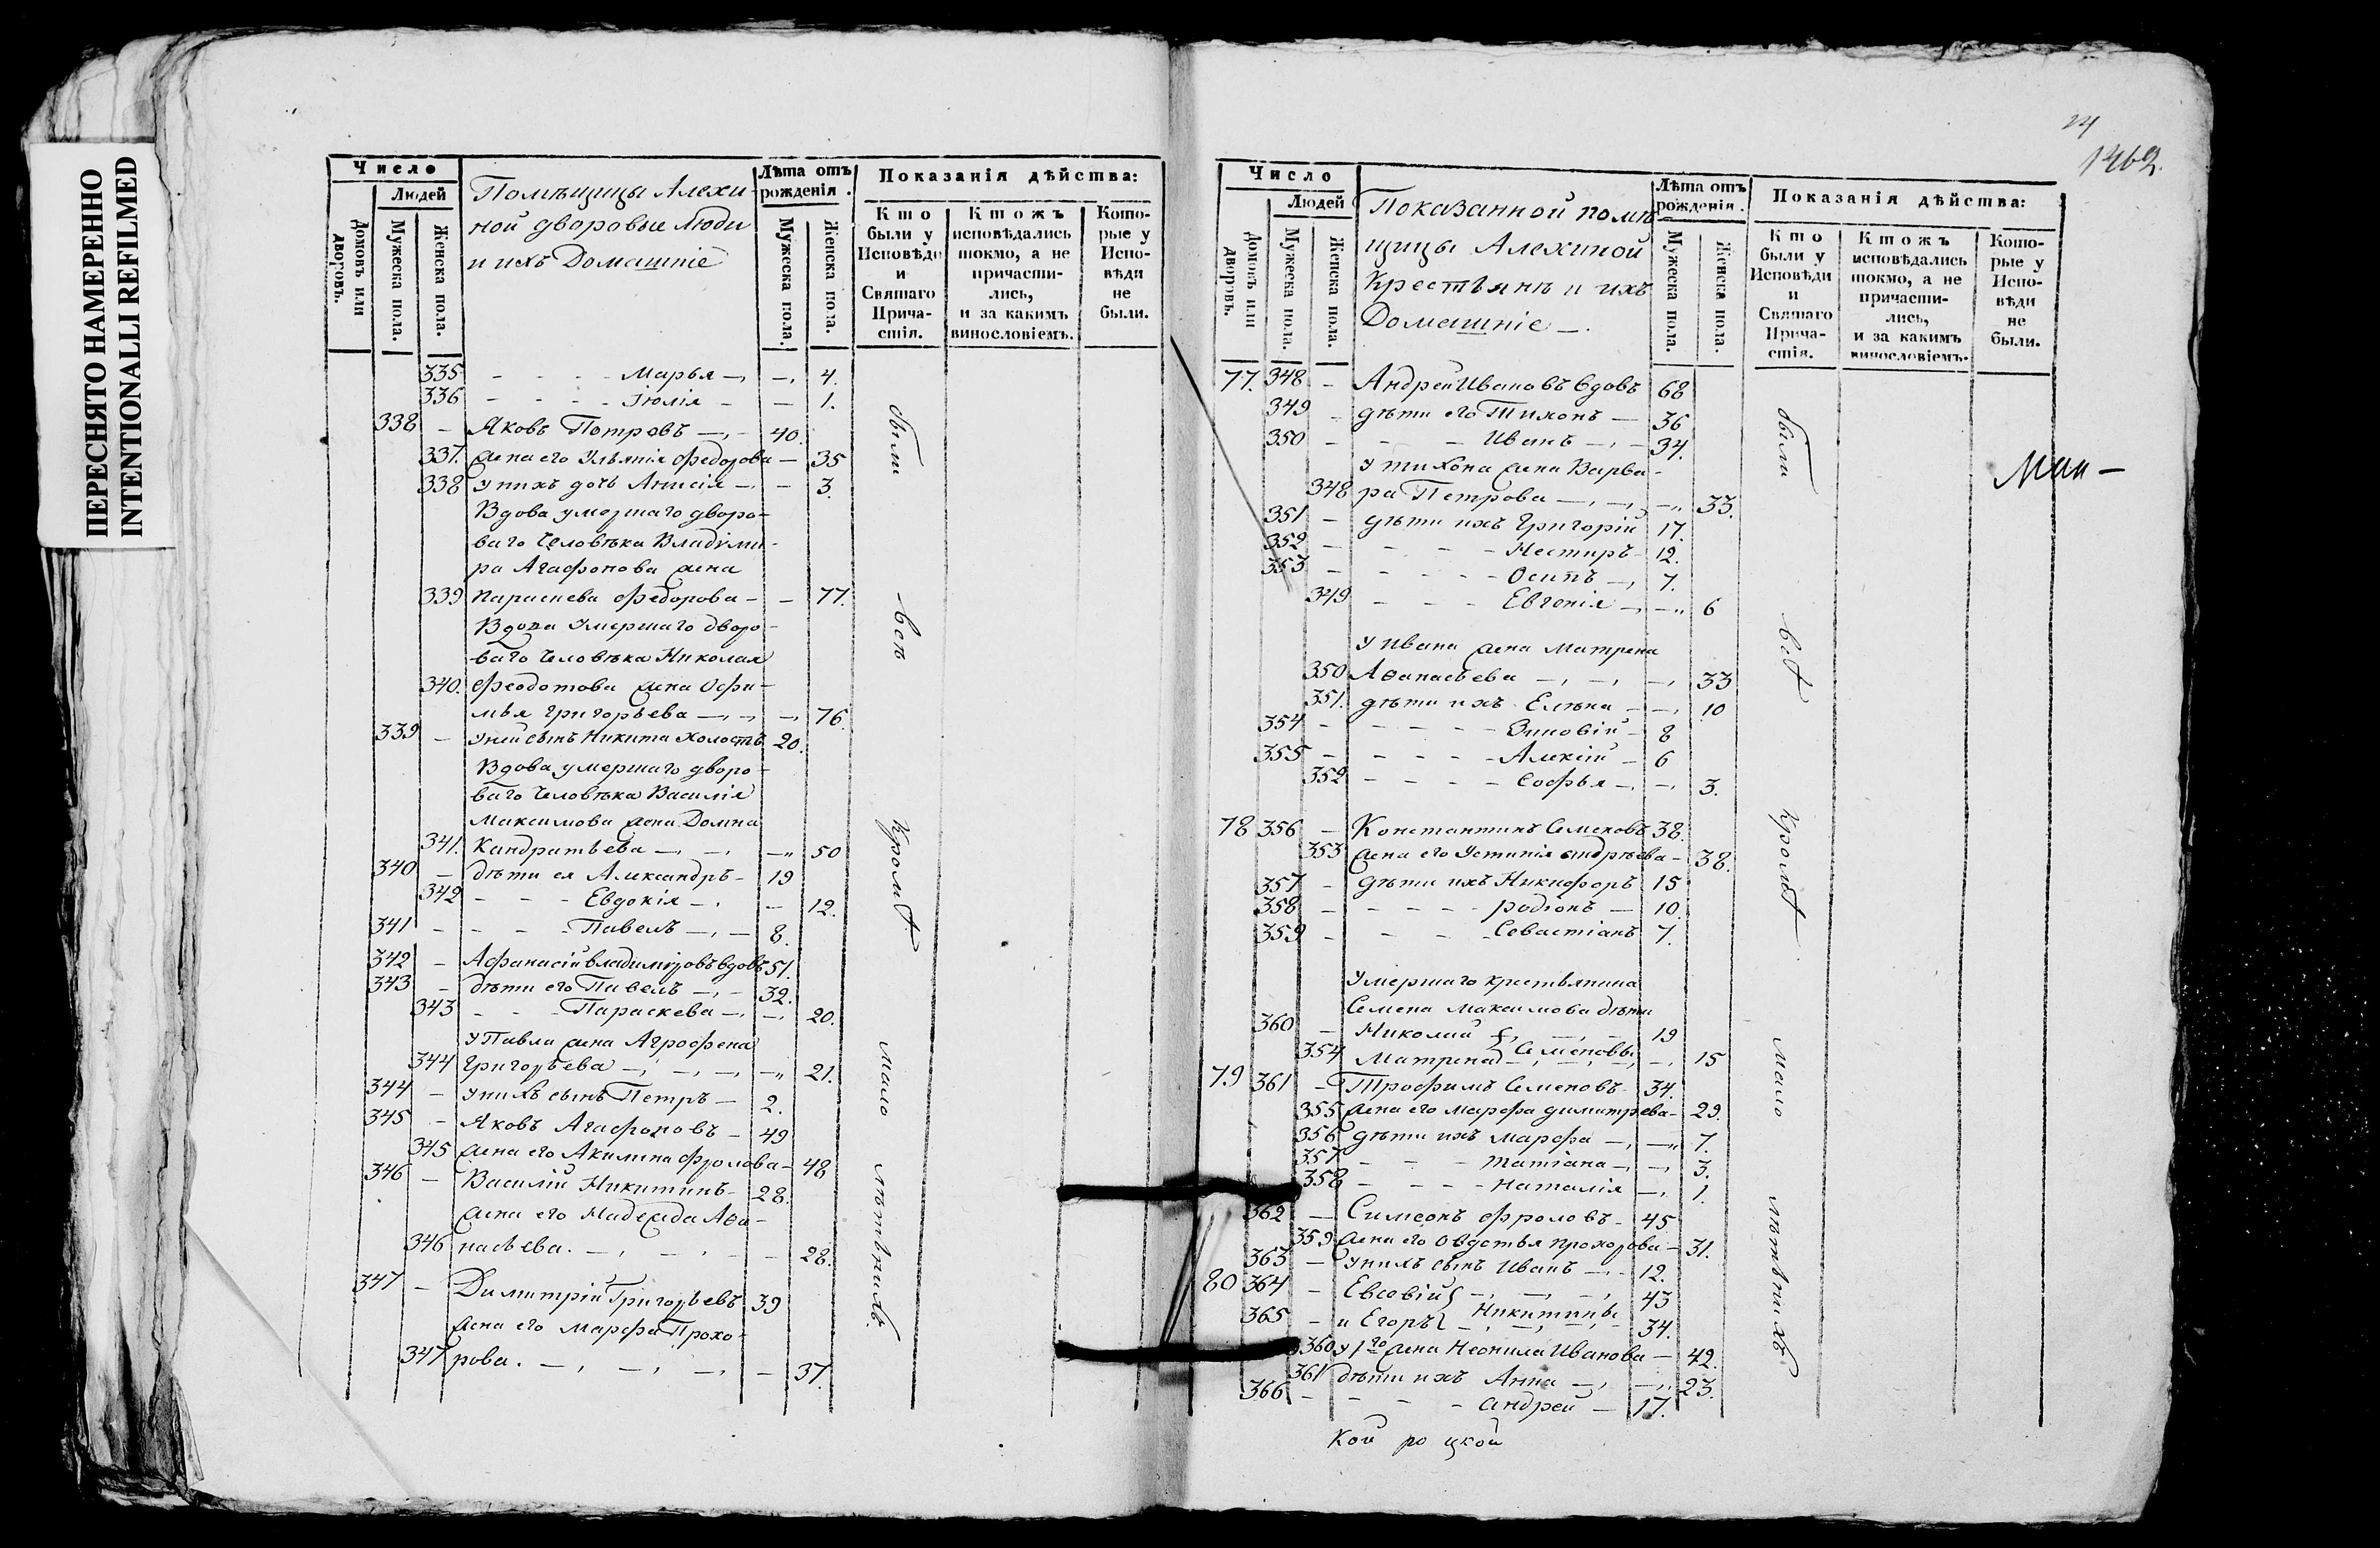 ПЕРЕСНЯТО НАМЕРЕННО
INTENTIONALLI REFILMED
Число
Людей
Домовъ или дворовъ.
Мужеска пола.
Женска пола.
Помѣщицы Алехи-
ной дворовые люди
и ихъ Домашніе
Лѣта отъ рожденія.
Мужеска пола.
Женска пола.
Показанія дѣйства:
Кто были у Исповѣди и Святаго Прича- стія.
Ктожъ исповѣдались токмо, а не причасти- лись, и за какимъ винословіемъ.
Кото- рые у Испо- вѣди не были.
335 - - - Марья — — 4.
336 - - - Іюлія — — 1.
338 - Яковъ Петровъ — 40.
337. жена его Ульянія Федорова — 35
338 у нихъ дочь Анисія — — 3.
Вдова умершаго дворо-
ваго человѣка Владими-
ра Агафонова жена
339 Параскева Федорова — — 77.
Вдова умершаго дворо-
ваго человѣка Николая
340. Феодотова жена Офи-
мья Григорьева — — 76.
339 - у ней сынъ Никита холостъ 20.
Вдова умершаго дворо-
ваго человѣка Василія
Максимова жена Домна
341. Кандратьева — — 50
340 - дѣти ея Александръ - 19
342 - - - Евдокія — — 12.
341 - - - Павелъ — 8.
342 - Афанасій Владиміровъ вдовъ 51.
343 - дѣти его Павелъ — 32.
343 - - Параскева — — 20.
у Павла жена Агрофена
344 Григорьева — — 21.
344 - у нихъ сынъ Петръ — 2.
345 - Яковъ Агафоновъ — 49
345 жена его Акилина Фролова — 48
346 - Василій Никитинъ - 28.
жена его Надежда Афа-
346 насьева. — — 28.
347 - Димитрій Григорьевъ 39
жена его Марфа Прохо-
347 рова. — — 37.
были всѣ кромѣ мало лѣтнихъ.
24
1462.
Число
Людей
Домовъ или дворовъ.
Мужеска пола.
Женска пола.
Показанной помѣ-
щицы Алехиной
Крестьянѣ и ихъ
Домашніе —.
Лѣта отъ рожденія.
Мужеска пола.
Женска пола.
Показанія дѣйства:
Кто были у Исповѣди и Святаго Прича- стія.
Ктожъ исповѣдались токмо, а не причасти- лись, и за какимъ винословіемъ.
Кото- рые у Испо- вѣди не были.
77. 348 - Андрей Ивановъ вдовъ 68
349 - дѣти его Тихонъ — 36
350 - - - Иванъ — 34.
у Тихона жена Варва-
348 ра Петрова — — 33.
351 - дѣти ихъ Григорій 17.
352 - - - Нестиръ - 12.
353 - - - Осипъ — 7.
349 - - - Евгенія — — 6
у Ивана жена Матрена
350 Аѳанасьева — — 33
351. дѣти ихъ Елѣна — — 10
354 - - - Зиновій - 8
355 - - - Алексій - 6
352 - - - Софья — — 3.
78 356 - Константинъ Семеновъ 38.
353 жена его Устинія Андрѣева — 38.
357 - дѣти ихъ Никифоръ 15
358 - - - Родіонъ — 10.
359 - - - Севастіанъ 7.
умершаго крестьянина
Семена Максимова дѣти
360 - Николай — 19
Семеновы
354 Матрена — — 15
79 361 - Трофимъ Семеновъ - 34.
355 жена его Марфа Димитрева — 29.
356 дѣти ихъ Марфа — — 7.
357 - - - Татіана — — 3.
358 - - - Наталія — — 1.
362 - Симеонъ Фроловъ - 45
359 жена его Овдотья Прохорова — 31.
363 - у нихъ сынъ Иванъ — 12.
80 364 - Евсевій — 43
Никитины
365 - и Егоръ — 34.
360 у 1го жена Неонила Иванова — 42.
361 дѣти ихъ Анна — — 23.
366 - - - Андрей — 17.
были всѣ кромѣ мало лѣтнихъ